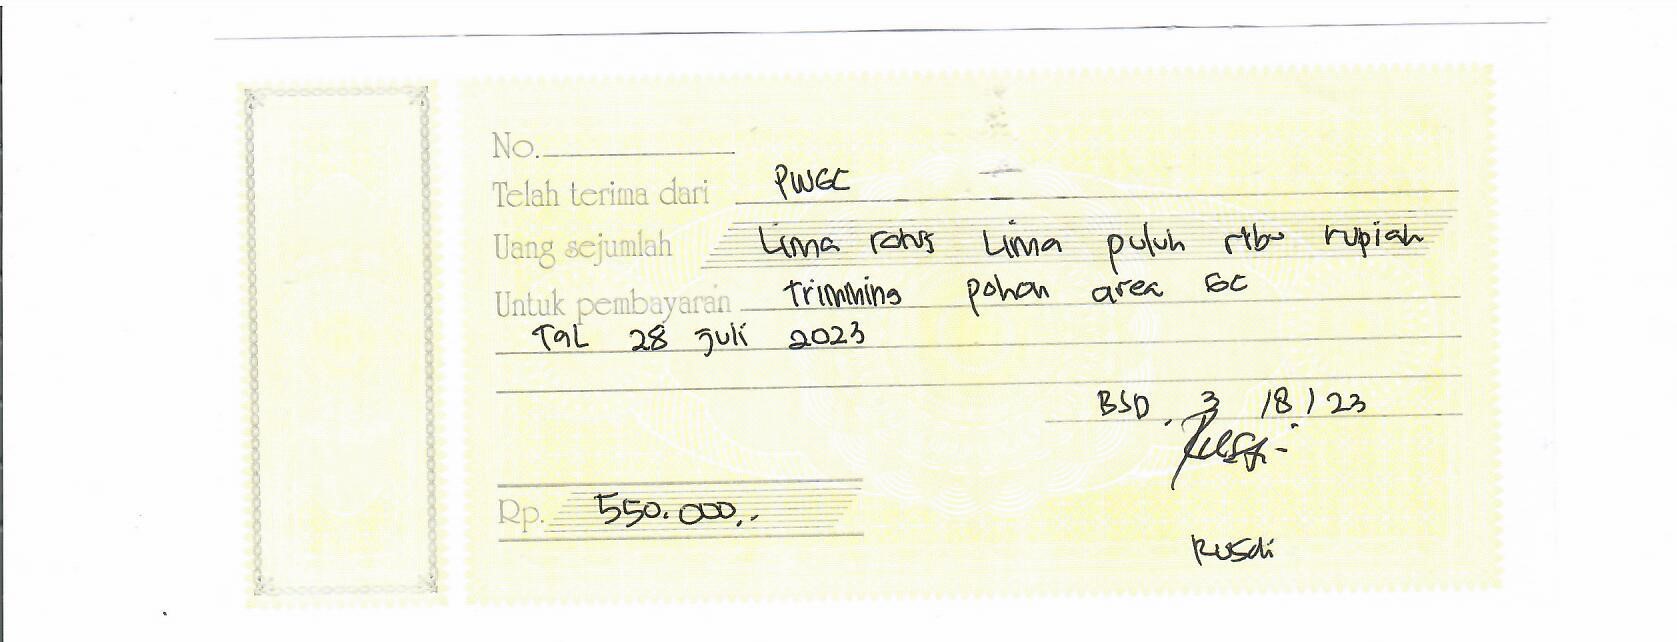 No.
Telah terima dari PWGC
Uang sejumlah Lima ratus Lima puluh ribu rupiah
Untuk pembayaran trimming pohon area GC
Tgl 28 Juli 2023
BSD, 3 /8 / 23
Rp. 550.000,-
Rusdi